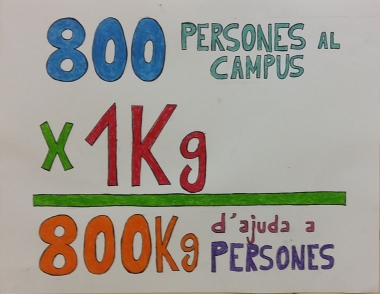 800 PERSONES AL
CAMPUS
x 1Kg
800Kg d'ajuda a
PERSONES